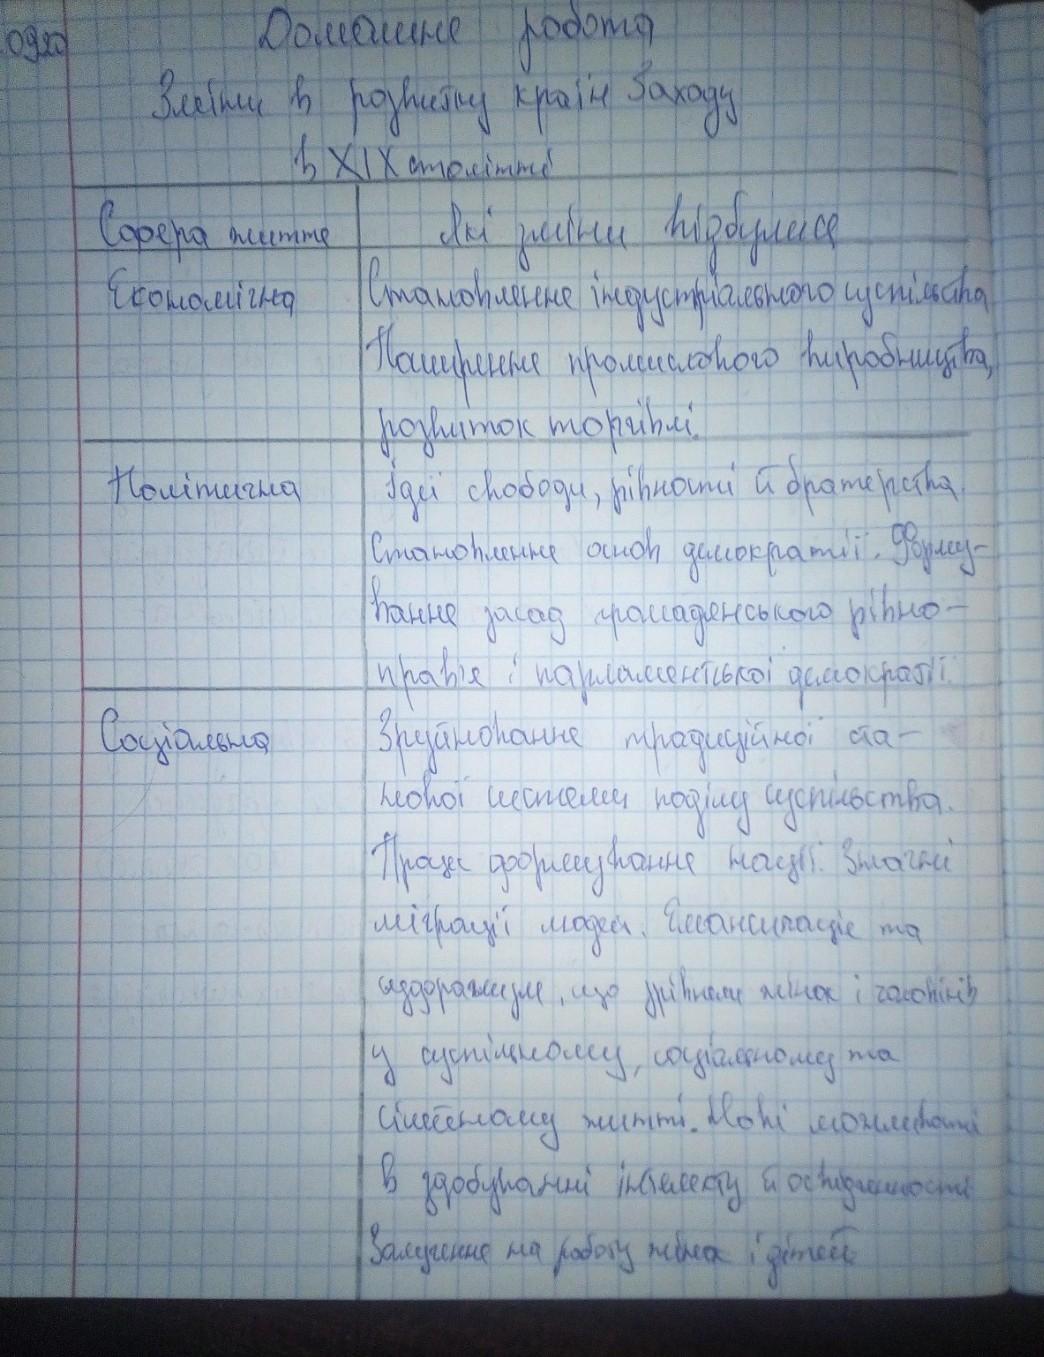 09.10
Домашня робота
Зміни в розвитку країн Заходу
в XIX столітті
Сфера життя
Які зміни відбулися
Економічна
Становлення індустріального суспільства
Поширення промислового виробництва,
розвиток торгівлі.
Політична
Ідеї свободи, рівності й братерства.
Становлення основ демократії. Форму-
вання засад громадянського рівно-
прав'я і парламентської демократії.
Соціальна
Зруйнування традиційної ста-
нової системи поділу суспільства.
Процес формування нації. Значні
міграції людей. Емансипація та
суфражизм, що зрівняли жінок і чоловіків
у суспільному, соціальному та
сімейному житті. Нові можливості
в здобуванні інтелекту й освідченності
Залучення на роботу жінок і дітей